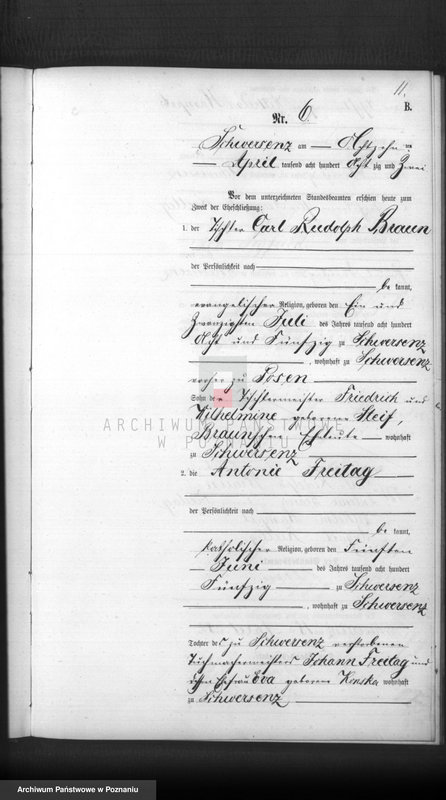 11.
B.
Nr. 6
Schwersenz am — Achtzehn ten
— April tausend acht hundert Acht zig und Zwei
Vor dem unterzeichneten Standesbeamten erschien heute zum
Zweck der Eheschließung:
1. der Tischler Carl Rudolph Braun
der Persönlichkeit nach
be kannt,
evangelischer Religion, geboren den Ein und
Zwanzigsten Juli des Jahres tausend acht hundert
Acht und Fünfzig zu Schwersenz
, wohnhaft zu Schwersenz
vorher zu Posen
Sohn des Tischlermeister Friedrich und
Wilhelmine geborenen
Braunschen Eheleute — wohnhaft
zu Schwersenz
ARCHIWUM PAŃSTWOWE
W POZNANIU
2. die Antonie Freitag
der Persönlichkeit nach
be kannt,
katholischer Religion, geboren den Fünften
— Juni — des Jahres tausend acht hundert
Fünfzig — zu Schwersenz
, wohnhaft zu Schwersenz
Tochter des zu Schwersenz verstorbenen
Tuchmachermeisters Johann Freitag und
Ehefrau Eva geborene Konska wohnhaft
zu Schwersenz
Archiwum Państwowe w Poznaniu